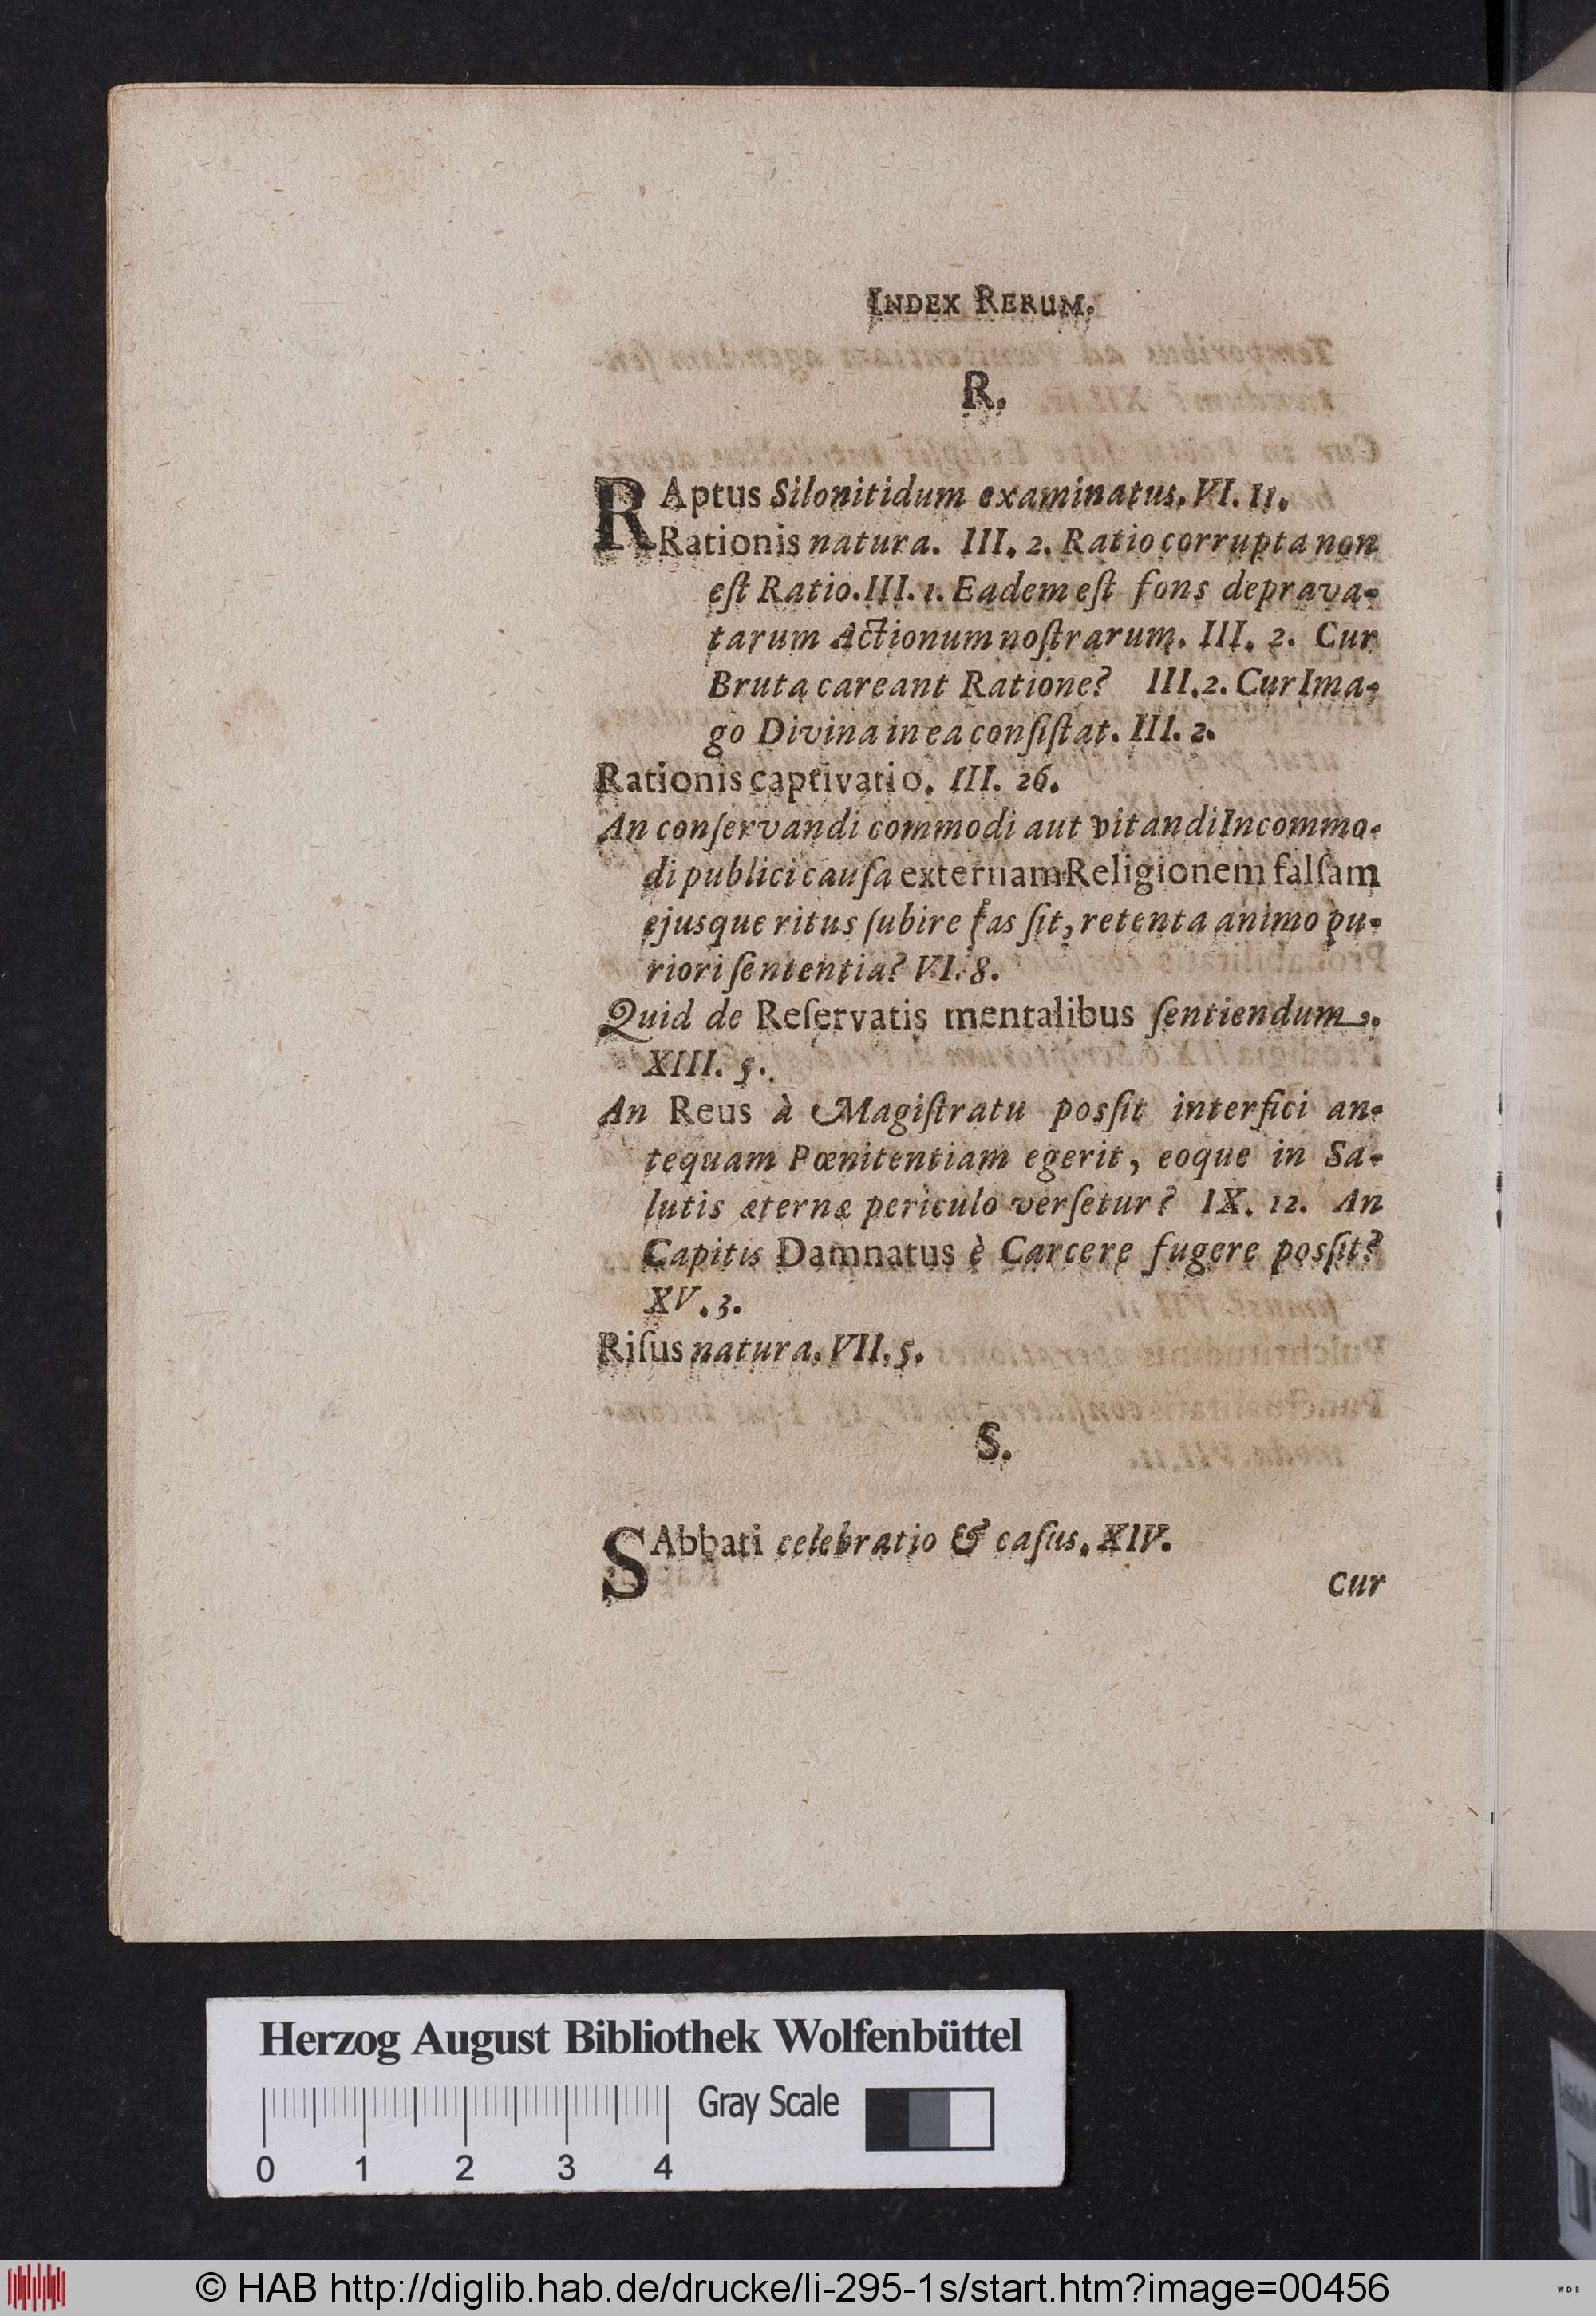 INDEX RERUM.
R.
RAptus Silonitidum examinatus. VI. 11.
Rationis natura. III. 2. Ratio corrupta non
eſt Ratio. III. 1. Eadem eſt fons deprava-
tarum Actionum noſtrarum. III. 2. Cur
Bruta careant Ratione? III. 2. Cur Ima-
go Divina in ea conſiſtat. III. 2.
Rationis captivatio. III. 26.
An conſervandi commodi aut vitandi Incommo-
di publici cauſa externam Religionem falſam
ejusque ritus ſubire fas ſit, retenta animo pu-
riori ſententia? VI. 8.
Quid de Reſervatis mentalibus ſentiendum.
XIII. 5.
An Reus à Magiſtratu posſit interfici an-
tequam Pœnitentiam egerit, eoque in Sa-
lutis æternæ periculo verſetur? IX. 12. An
Capitis Damnatus è Carcere fugere posſit?
XV. 3.
Riſus natura. VII. 5.
S.
SAbbati celebratio & caſus. XIV.
Cur
Herzog August Bibliothek Wolfenbüttel
Gray Scale
0 1 2 3 4
© HAB http://diglib.hab.de/drucke/li-295-1s/start.htm?image=00456
WDB